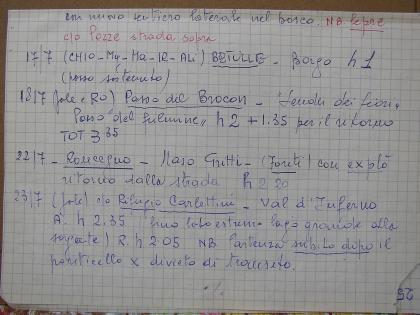 un nuovo sentiero laterale nel bosco. NB lepre
c/o Pozze strada sopra
17/7 (CHIO-My-Ma-IR-Ali) BETULLE - Borgo h 1
(passo sostenuto)
18/7 (sole e RO) Passo del Brocon - "Sentiero dei fiori,
Passo del fulmine" h 2 + 1.35 per il ritorno
TOT 3 35
22/7 - Roncegno - Maso Trotti - (Fonti) con explò
ritorno dalla strada h 2.20
23/7 (sole) c/o Rifugio Carlettini - Val d'Inferno
A. h 2.35 (fino lato estremo lago grande alla
sorgente) R. h 2.05 NB Partenza subito dopo il
ponticello x divieto di transito.
25